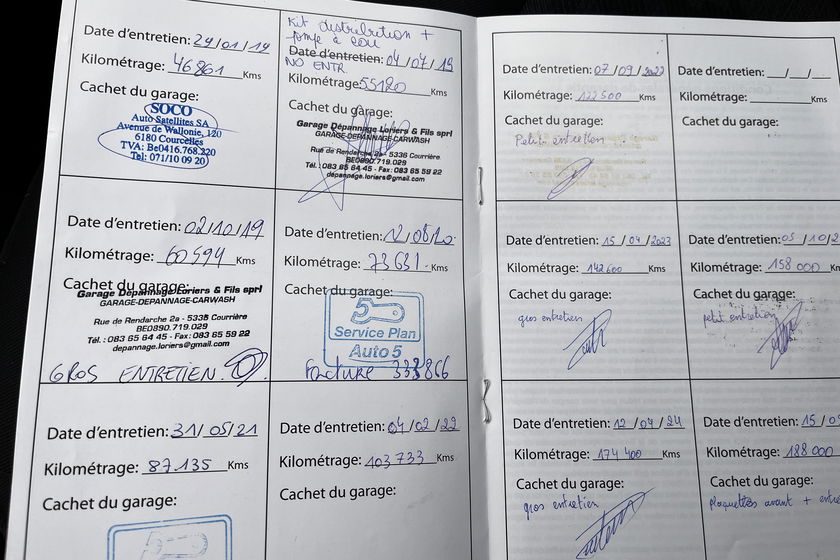 Date d'entretien: 29/01/19
Kilométrage: 46861 Kms
Cachet du garage:
SOCO
Auto Satellites SA
Avenue de Wallonie, 120
6180 Courcelles
TVA: Be0416.768.220
Tel: 071/10 09 20
Kit distribution +
pompe à eau
Date d'entretien: 04/07/19
NO ENTR.
Kilométrage: 55120 Kms
Cachet du garage:
Garage Dépannage Loriers & Fils sprl
GARAGE-DEPANNAGE-CARWASH
Rue de Rendarche 2a - 5336 Courrière
BE0890.719.029
Tél.: 083 65 64 45 - Fax: 083 65 59 22
depannage.loriers@gmail.com
Date d'entretien: 02/10/19
Kilométrage: 60594 Kms
Cachet du garage:
Garage Dépannage Loriers & Fils sprl
GARAGE-DEPANNAGE-CARWASH
Rue de Rendarche 2a - 5336 Courrière
BE0890.719.029
Tél.: 083 65 64 45 - Fax: 083 65 59 22
depannage.loriers@gmail.com
GROS ENTRETIEN.
Date d'entretien:
Kilométrage: 73631. Kms
Cachet du garage:
Service Plan
Auto 5
Facture 338866
Date d'entretien: 31/05/21
Kilométrage: 87.135 Kms
Cachet du garage:
Date d'entretien: 04/02/22
Kilométrage: 103733 Kms
Cachet du garage:
Date d'entretien: 07/09/2022
Kilométrage: 122500 Kms
Cachet du garage:
Petit entretien
Date d'entretien: __/__/__
Kilométrage: Kms
Cachet du garage:
Date d'entretien: 15/04/2023
Kilométrage: 142600 Kms
Cachet du garage:
gros entretien
Date d'entretien: 05/10/2
Kilométrage: 158 000 Kms
Cachet du garage:
petit entretien
Date d'entretien: 12/04/24
Kilométrage: 174 400 Kms
Cachet du garage:
gros entretien
Date d'entretien: 15/0
Kilométrage: 188 000 Kms
Cachet du garage:
plaquettes avant + entre